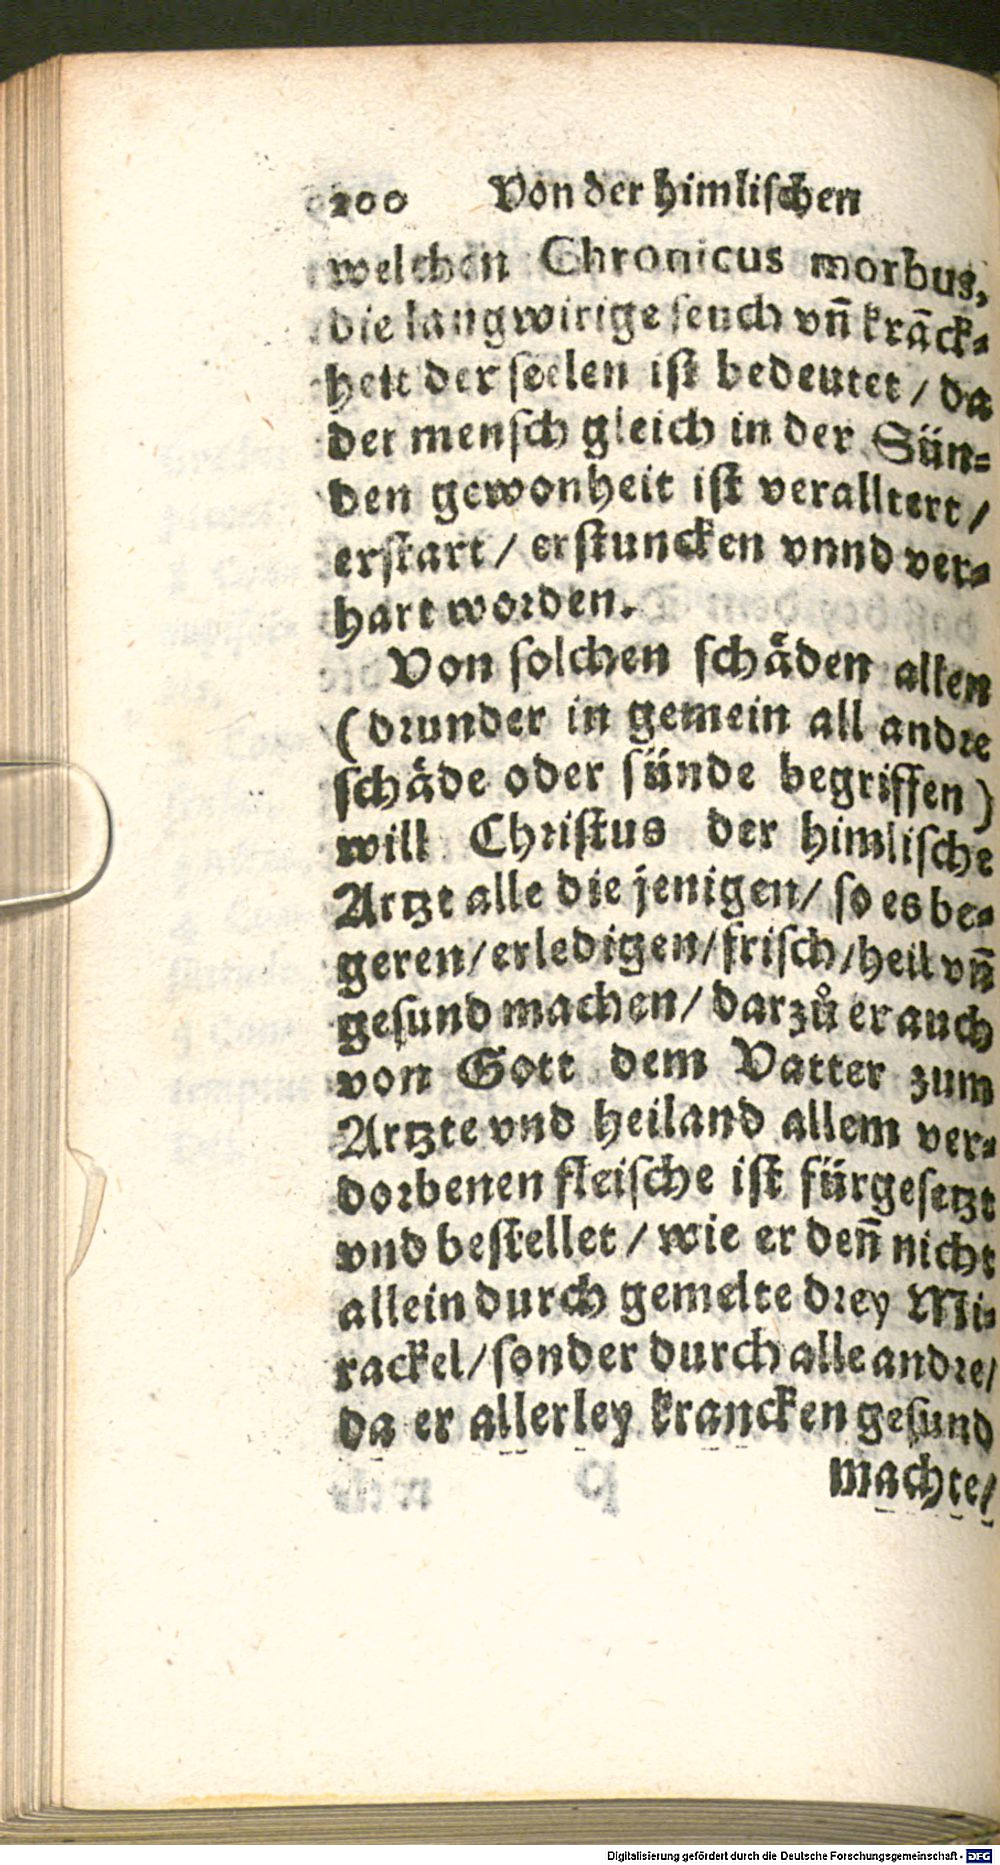 200 Von der himlischen
welchen Chronicus morbus,
die langwirige seuch vn̄ krāck⸗
heit der seelen ist bedeutet / da
der mensch gleich in der Sün⸗
den gewonheit ist veralltert /
erstart / erstuncken vnnd ver⸗
hart worden.
Von solchen schäden allen
(drunder in gemein all andre
schäde oder sünde begriffen)
will Christus der himlische
Artzt alle die jenigen / so es be⸗
geren / erledigen / frisch / heil vn̄
gesund machen / darzů er auch
von Gott dem Vatter zum
Artzte vnd heiland allem ver⸗
dorbenen fleische ist fürgesetzt
vnd bestellet / wie er den̄ nicht
allein durch gemelte drey Mi⸗
rackel / sonder durch alle andre /
da er allerley krancken gesund
machte /
Digitalisierung gefördert durch die Deutsche Forschungsgemeinschaft - DFG